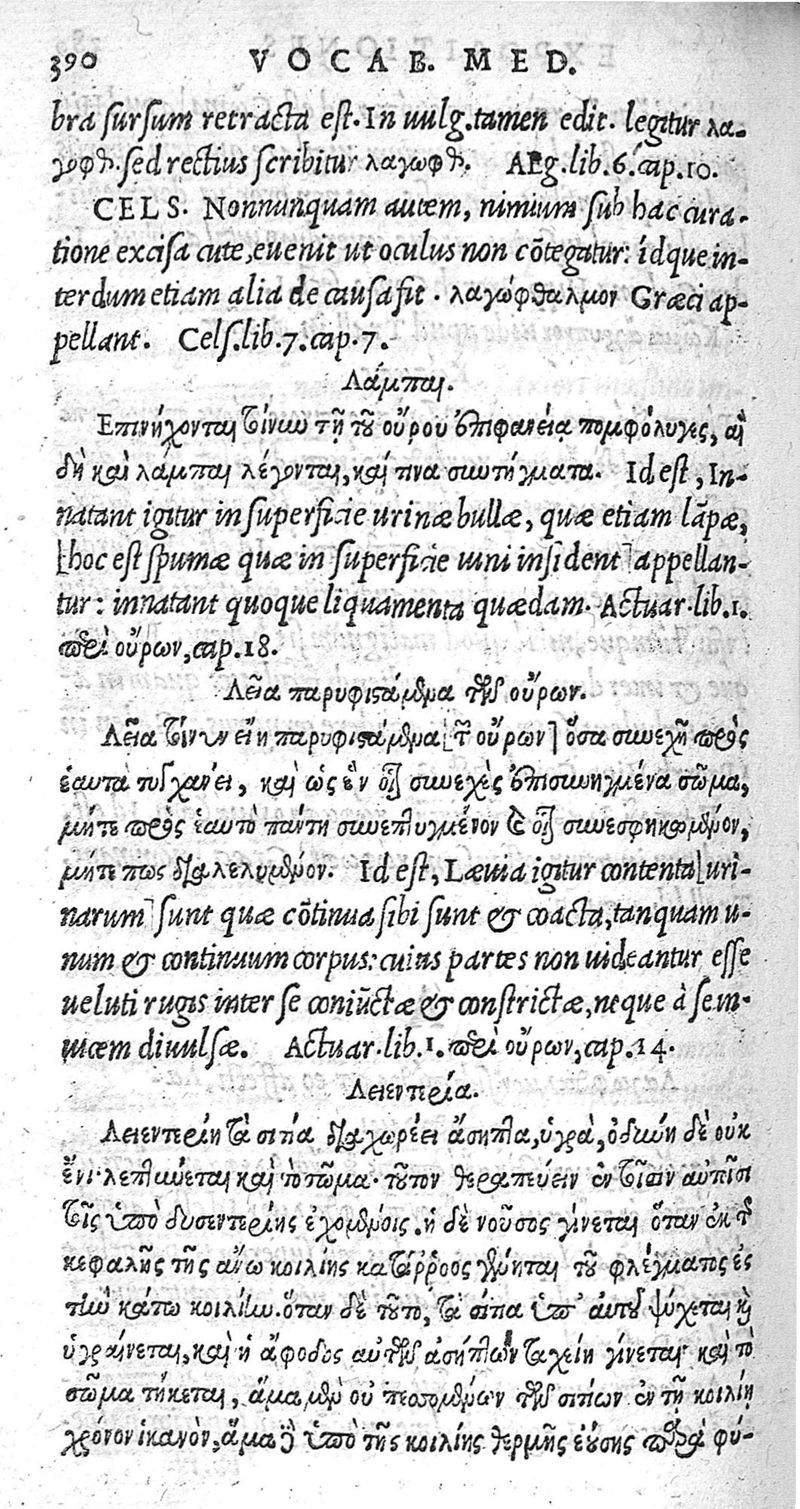 390 VOCAB. MED.
bra sursum retracta est. In uulg. tamen edit. legitur λα-
γοφθ. sed rectius scribitur λαγωφθ. AEg. lib. 6. cap. 10.
CELS. Nonnunquam autem, nimium sub hac cura-
tione excisa cute, euenit ut oculus non cõtegatur: idque in-
terdum etiam alia de causa fit. λαγώφθαλμον Græci ap-
pellant. Cels. lib. 7. cap. 7.
Λάμπαι.
Επινήχονται τοίνυν τῇ τοῦ οὔρου ἐπιφανείᾳ πομφόλυγες, αἳ
δὴ καὶ λάμπαι λέγονται, καί τινα συντήγματα. Id est, In-
natant igitur in superficie urinæ bullæ, quæ etiam lãpæ,
[hoc est spumæ quæ in superficie uini insident] appellan-
tur: innatant quoque liquamenta quædam. Actuar. lib. 1.
περὶ οὔρων, cap. 18.
Λεῖα παρυφιστάμενα τῶν οὔρων.
Λεῖα τοίνυν εἴη παρυφιστάμενα [τῶν οὔρων] ὅσα συνεχῆ πρὸς
ἑαυτὰ τυγχάνει, καὶ ὡς ἓν οἷον συνεχὲς ἐπισυνηγμένα σῶμα,
μήτε πρὸς ἑαυτὸ πάντη συνεπτυγμένον καὶ οἷον συνεσφηκωμένον,
μήτε πως διαλελυμένον. Id est, Læuia igitur contenta [uri-
narum] sunt quæ cõtinua sibi sunt & coacta, tanquam u-
num & continuum corpus: cuius partes non uideantur esse
ueluti rugis inter se coniũctæ & constrictæ, neque à se in-
uicem diuulsæ. Actuar. lib. 1. περὶ οὔρων, cap. 14.
Λειεντερία.
Λειεντερίη τὰ σιτία διαχωρέει ἄσηπτα, ὑγρὰ, ὀδύνη δὲ οὐκ
ἔνι. λεπτύνεται καὶ τὸ σῶμα. τοῦτον θεραπεύειν ἐν τοῖσιν αὐτοῖσι
τοῖς ὑπὸ δυσεντερίης ἐχομένοις. ἡ δὲ νοῦσος γίνεται ὅταν ἐκ τῆς
κεφαλῆς τῆς ἄνω κοιλίης κατάρροος γένηται τοῦ φλέγματος ἐς
τὴν κάτω κοιλίην. ὅταν δὲ τοῦτο, τὰ σιτία ὑπ' αὐτοῦ ψύχεται καὶ
ὑγραίνεται, καὶ ἡ ἄφοδος αὐτῶν ἀσήπτων ταχείη γίνεται. καὶ τὸ
σῶμα τήκεται, ἅμα μὲν οὐ πεσσομένων τῶν σιτίων ἐν τῇ κοιλίῃ
χρόνον ἱκανὸν, ἅμα δὲ ὑπὸ τῆς κοιλίης θερμῆς ἐούσης παρὰ φύ-